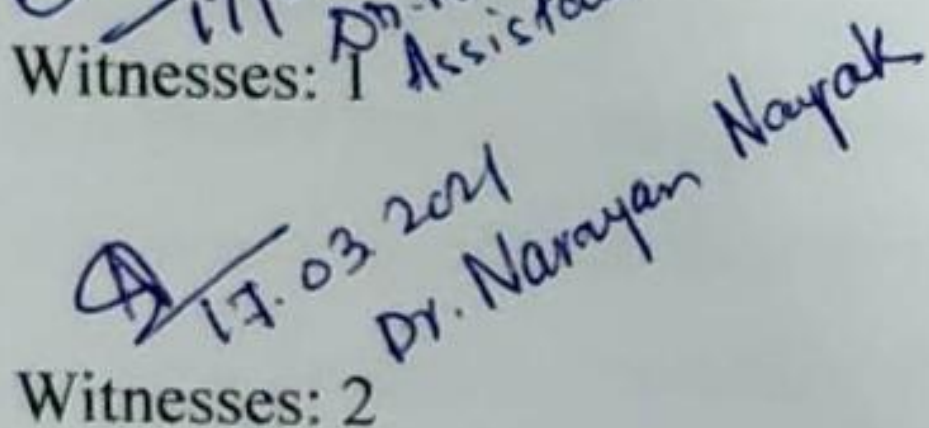 Witnesses: 1
17.03.2021
Dr. Narayan Nayak
Witnesses: 2